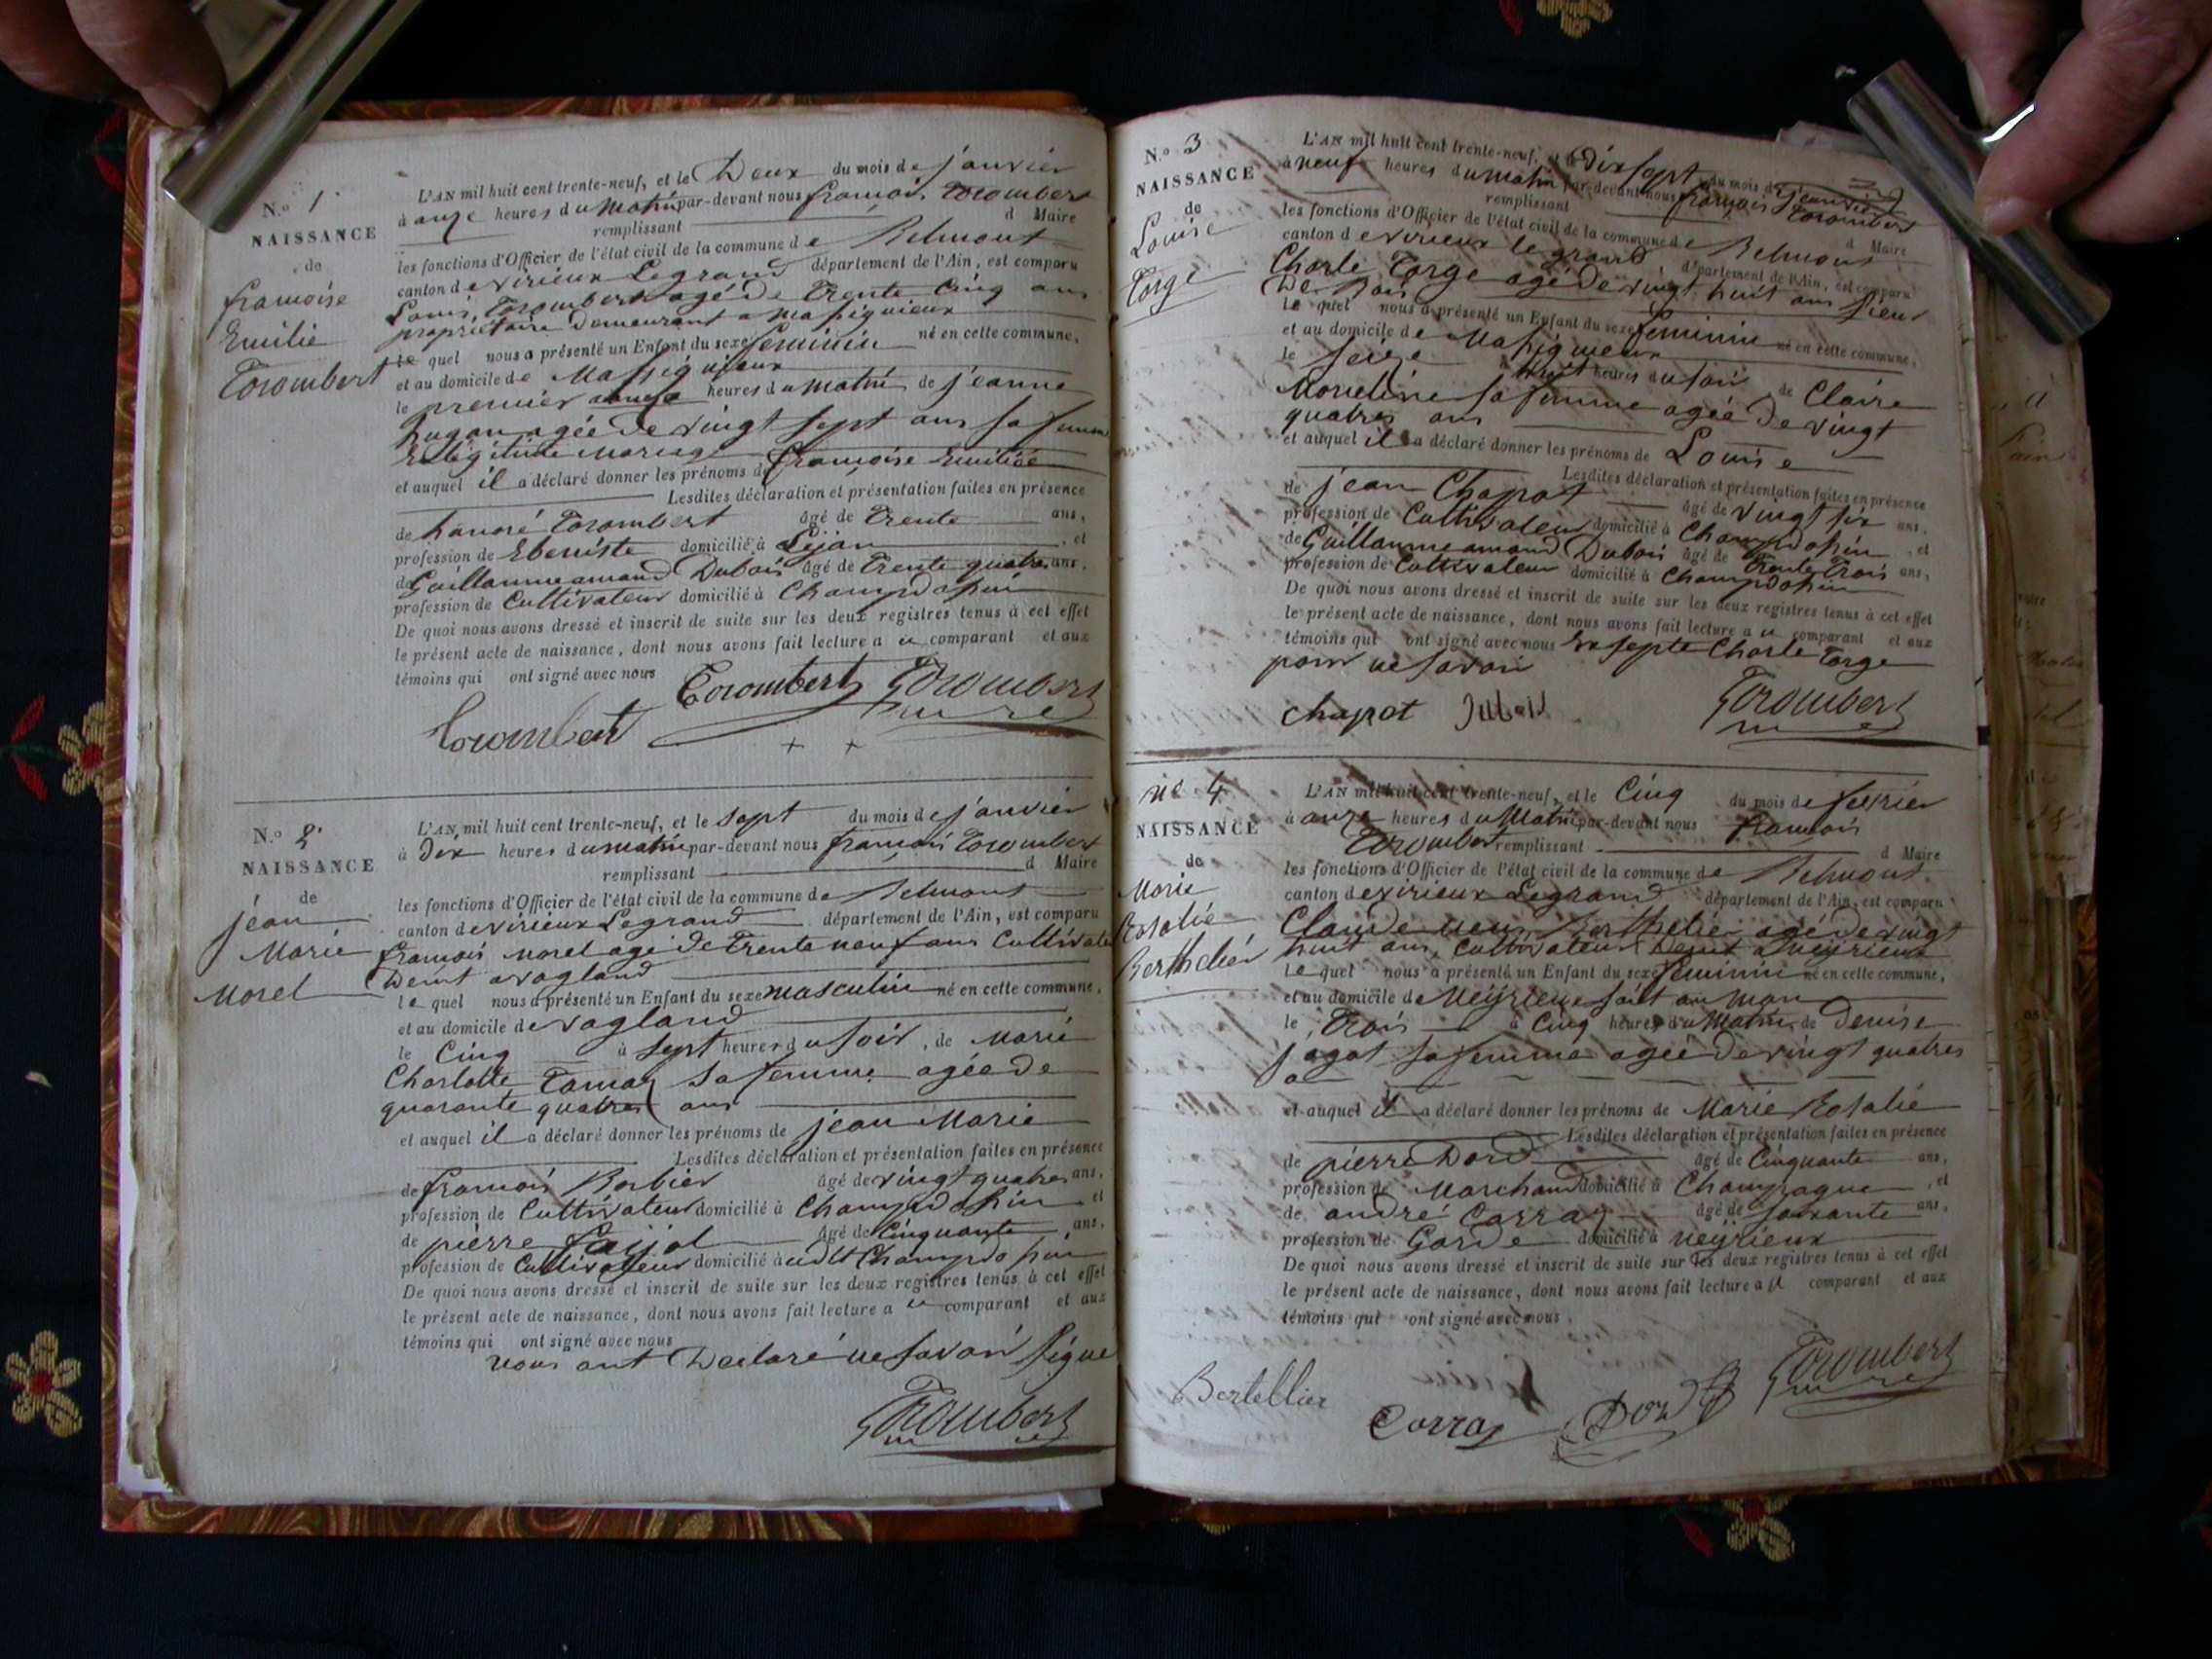 N.o 1
NAISSANCE
de
françoise
Emilie
Torombert
L'AN mil huit cent trente-neuf, et le Deux du mois de janvier
à onze heures du matin par-devant nous françois Torombert
remplissant d Maire
les fonctions d'Officier de l'état civil de la commune de Belmont
canton de virieux Legrand département de l'Ain, est comparu
Louis Torombert agé de trente cinq ans
propriétaire demeurant a Massignieux
le quel nous a présenté un Enfant du sexe feminin né en cette commune,
et au domicile de Massignieux
le premier heures du matin de jeanne
hugon agée de vingt sept ans sa femme
mariage
et auquel il a déclaré donner les prénoms de françoise Emilie
Lesdites déclaration et présentation faites en présence
de honoré Torombert âgé de trente ans,
profession de Ebeniste domicilié à Lejan , et
de Guillaume amand Dubois âgé de trente quatre ans,
profession de Cultivateur domicilié à Champdossin
De quoi nous avons dressé et inscrit de suite sur les deux registres tenus à cet effet
le présent acte de naissance, dont nous avons fait lecture a u comparant et aux
témoins qui ont signé avec nous
Torombert Torombert
Torombert maire
N.o 2
NAISSANCE
de
jean
Marie
Morel
L'AN mil huit cent trente-neuf, et le sept du mois de janvier
à dix heures du matin par-devant nous françois Torombert
remplissant d Maire
les fonctions d'Officier de l'état civil de la commune de Belmont
canton de virieux Legrand département de l'Ain, est comparu
françois morel agé de trente neuf ans Cultivate
Demt a vogland
le quel nous a présenté un Enfant du sexe masculin né en cette commune,
et au domicile de vogland
le Cinq à sept heures du soir, de Marie
Charlotte Tamaz sa femme agée de
quarante quatres ans
et auquel il a déclaré donner les prénoms de jean Marie
Lesdites déclaration et présentation faites en présence
de françois Barbier âgé de vingt quatres ans,
profession de Cultivateur domicilié à Champdossin et
de pierre âgé de Cinquante ans,
profession de Cultivateur domicilié à udit Champdossin
De quoi nous avons dressé et inscrit de suite sur les deux registres tenus à cet effet
le présent acte de naissance, dont nous avons fait lecture a u comparant et aux
témoins qui ont signé avec nous
nous ont Déclaré ne savoir signe
Torombert
maire
N.o 3
NAISSANCE
de
Louise
Torge
L'AN mil huit cent trente-neuf, et le dix sept du mois de janvier
à neuf heures du matin par-devant nous françois Torombert
remplissant d Maire
les fonctions d'Officier de l'état civil de la commune de Belmont
canton de virieux le grand département de l'Ain, est comparu
Charle Torge agé de vingt huit ans sieur
De Bois
le quel nous a présenté un Enfant du sexe feminin né en cette commune,
et au domicile de Massignieux
le seize huit heures du soir de Claire
Moueline sa femme agée de vingt
quatres ans
et auquel il a déclaré donner les prénoms de Louise
Lesdites déclaration et présentation faites en présence
de jean Chapot âgé de vingt six ans,
profession de Cultivateur domicilié à Champdossin , et
de Guillaume amand Dubois âgé de trente trois ans,
profession de Cultivateur domicilié à Champdossin
De quoi nous avons dressé et inscrit de suite sur les deux registres tenus à cet effet
le présent acte de naissance, dont nous avons fait lecture a u comparant et aux
témoins qui ont signé avec nous Exsepte Charle Torge
pour ne savoir
chapot Dubois Torombert
maire
no 4
NAISSANCE
de
Marie
Rosalie
Berthelier
L'AN mil huit cent trente-neuf, et le Cinq du mois de fevrier
à onze heures du Matin par-devant nous françois
Torombert remplissant d Maire
les fonctions d'Officier de l'état civil de la commune de Belmont
canton de virieux Legrand département de l'Ain, est comparu
Claude Berthelier agé de vingt
huit ans, Cultivateur Demt a Meyrieux
le quel nous a présenté un Enfant du sexe feminin né en cette commune,
et au domicile de Meyrieux
le Trois à Cinq heures du Matin, de Denise
jagot sa femme agée de vingt quatres
et auquel il a déclaré donner les prénoms de Marie Rosalie
Lesdites déclaration et présentation faites en présence
de pierre Dord âgé de Cinquante ans,
profession de Marchand domicilié à Champagne , et
de andré Corraz âgé de soixante ans,
profession de Garde domicilié à Meyrieux
De quoi nous avons dressé et inscrit de suite sur les deux registres tenus à cet effet
le présent acte de naissance, dont nous avons fait lecture a u comparant et aux
témoins qui ont signé avec nous
Bertellier Corraz Dord Torombert
maire